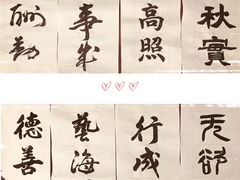 酬勤
事成
高照
秋實
德善
藝海
行成
无